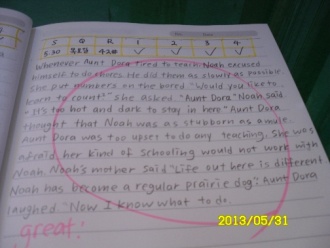 S Q R 1 2 3 4
5.30 ✓ ✓ ✓ ✓
Whenever Aunt Dora tired to teach Noah excused
himself to do chores. He did them as slowly as possible.
She put numbers on the bored "Would you like to
learn to count?" She asked. "Aunt Dora" Noah said
- It's to hot and dark to stay in here" Aunt Dora
thought that Noah was as stubborn as a mule.
Aunt Dora was too upset to do any teaching. She was
afraid her kind of schooling would not work with
Noah Noah's mother said "Life out here is different
Noah has become a regular prairie dog". Aunt Dora
laughed "Now I know what to do.
great!
2013/05/31